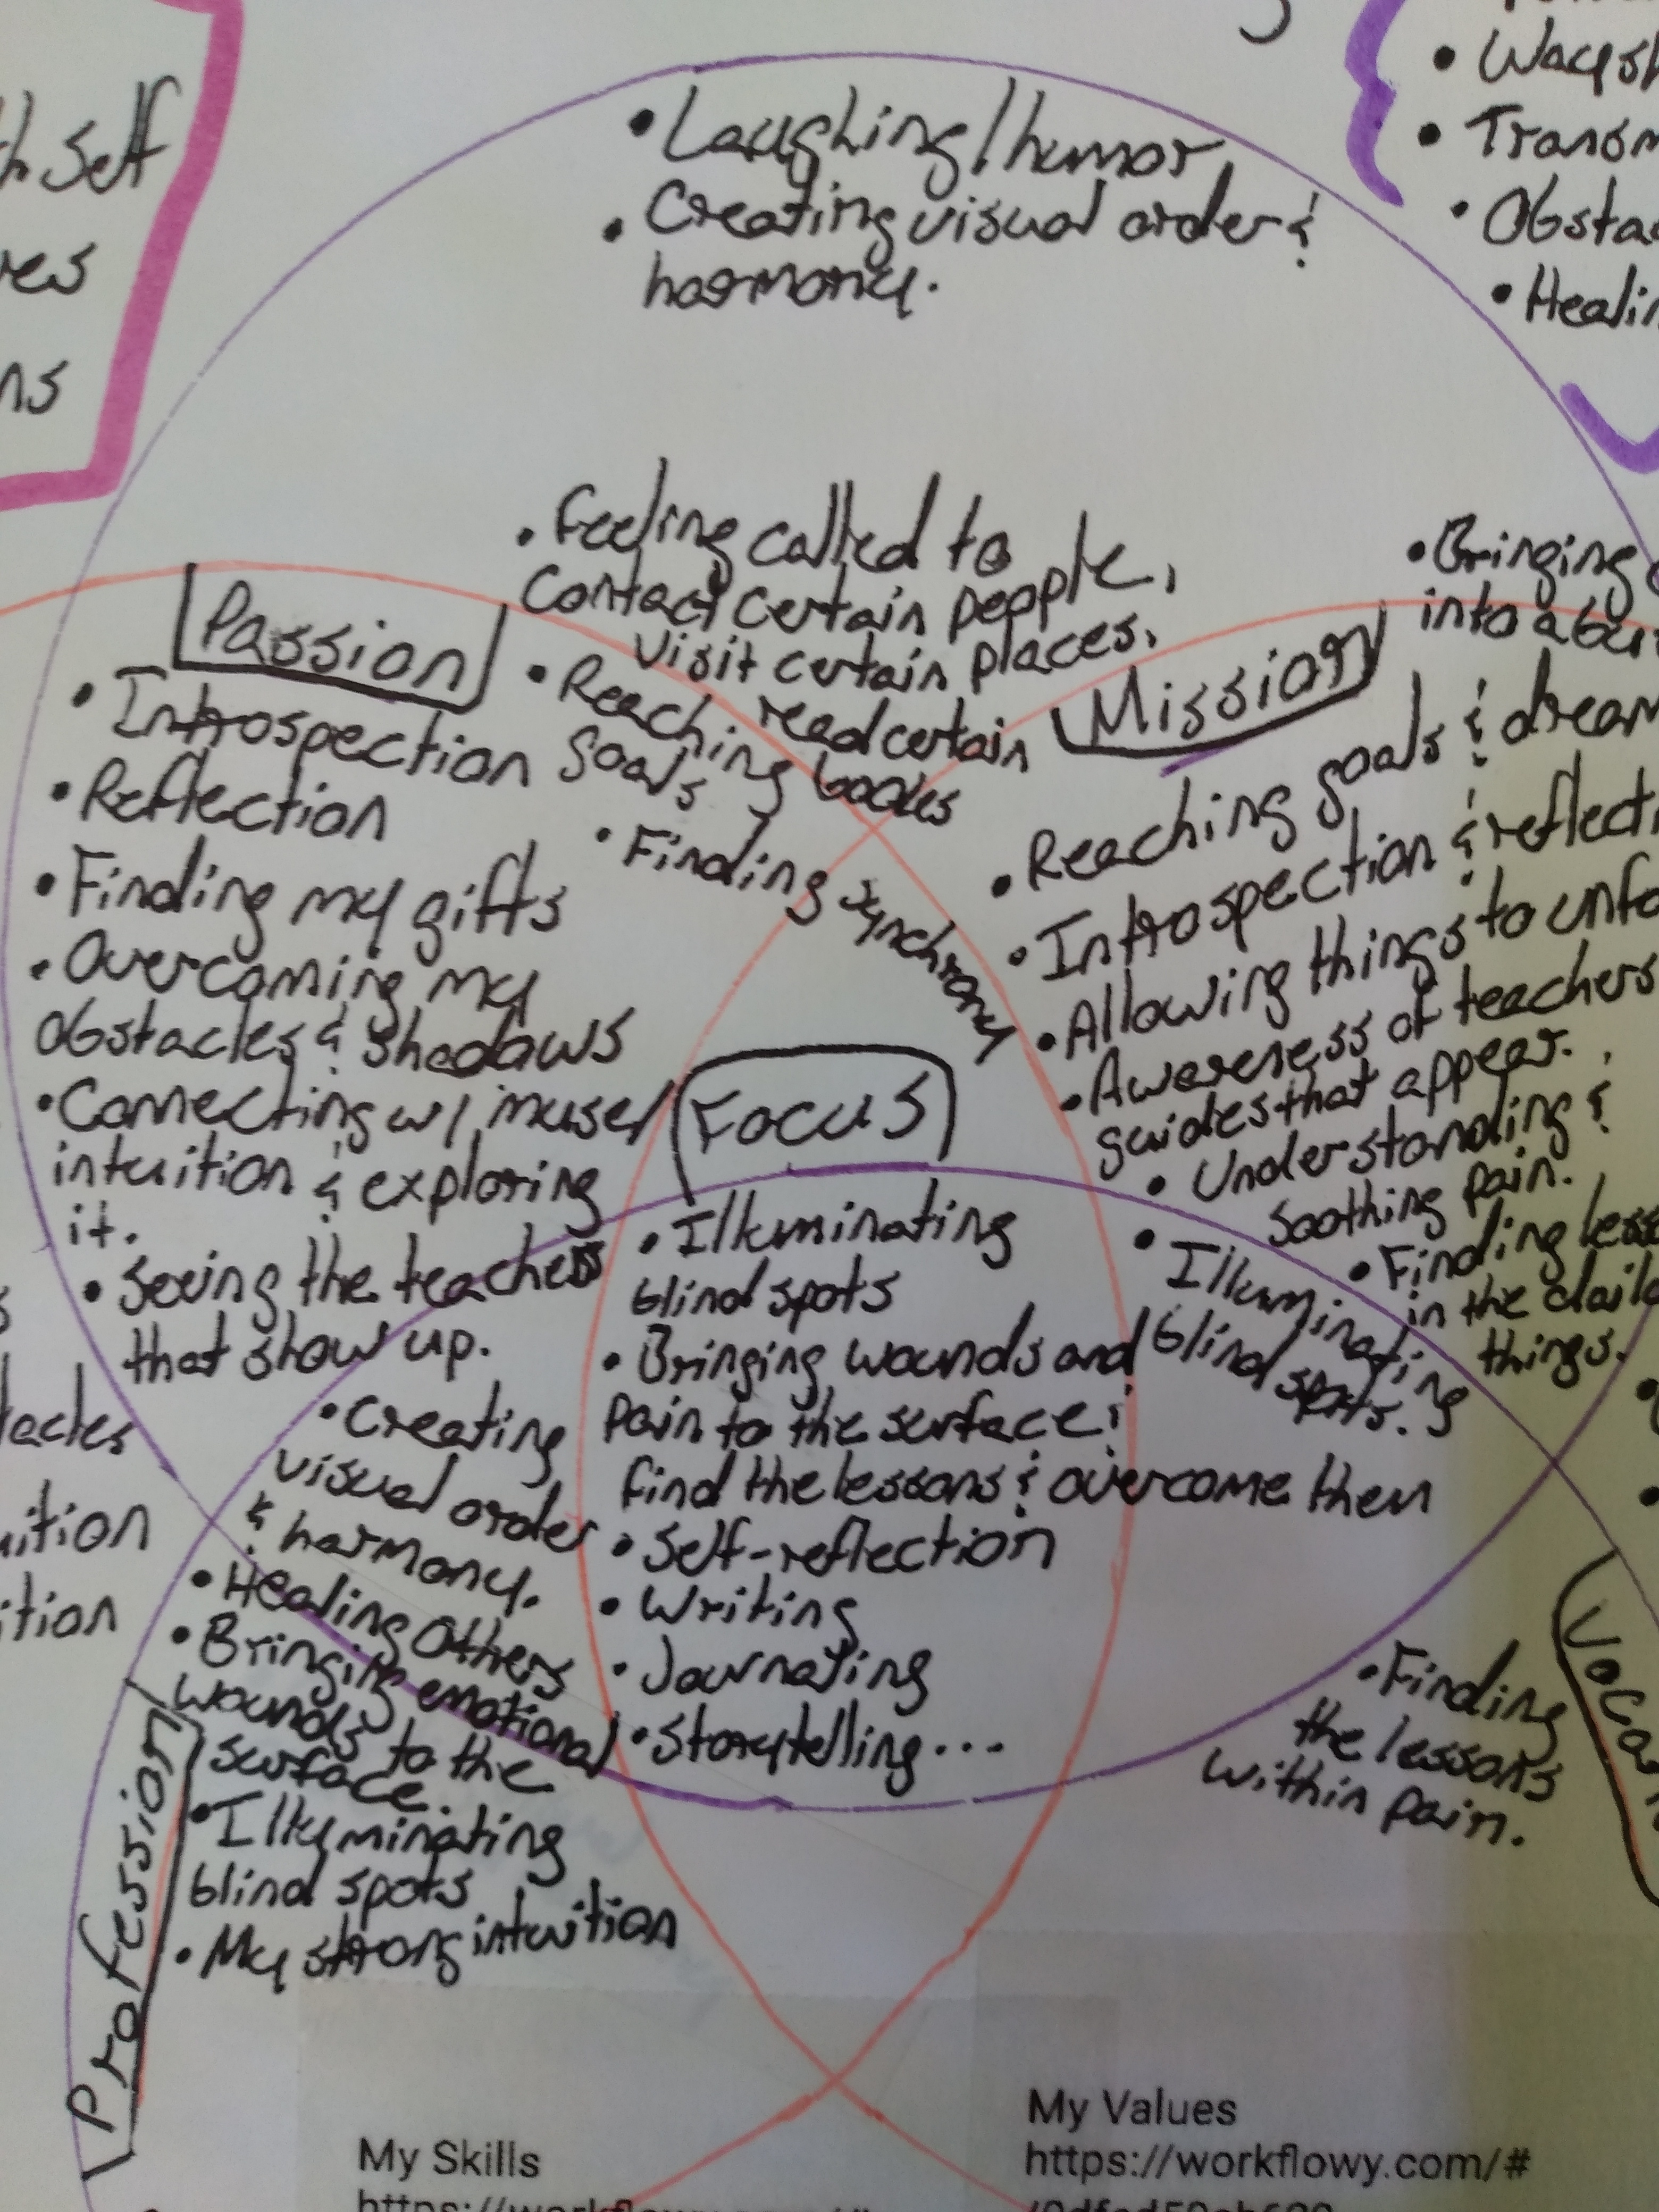 Self
• Laughing/humor
• Creating visual order &
harmony.
• Obsta
• Feeling called to
contact certain people,
visit certain places,
read certain
books
• Reaching
goals
• Finding synchrony
Passion
• Introspection
• Reflection
• Finding my gifts
• Overcoming my
obstacles & shadows
• Connecting w/ muse/
intuition & exploring
it.
• Seeing the teachers
that show up.
Mission
• Bringing
into a
• Reaching goals & dream
• Introspection & reflecti
• Allowing things to unfo
• Awareness of teachers
guides that appear.
• Understanding &
soothing pain.
• Finding less
in the daile
things.
• Illuminating
blind spots.
Focus
• Illuminating
blind spots
• Bringing wounds and
pain to the surface &
find the lessons & overcome them
• Self-reflection
• Writing
• Journating
• Storytelling...
• Creating
visual order
& harmony.
• Healing Others
• Bringing emotional
wounds to the
surface.
• Illuminating
blind spots
• My strong intuition
Profession
• Finding
the lessons
within pain.
Voca
My Skills
My Values
https://workflowy.com/#